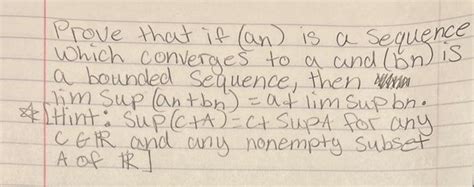 Prove that if (an) is a sequence
which converges to a and (bn) is
a bounded sequence, then
lim sup (an+bn) = a+ lim sup bn.
* [Hint: sup(c+A)=c+ SupA for any
C∈ℝ and any nonempty subset
A of ℝ]